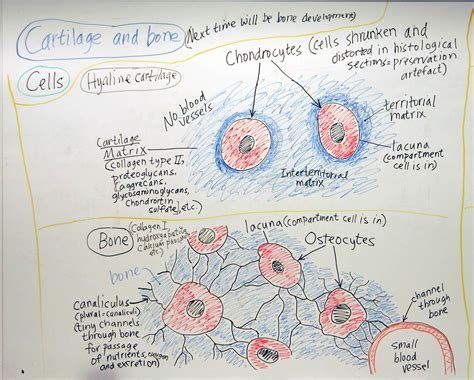 Cartilage and bone (Next time will be bone development)
Cells
Hyaline Cartilage
Chondrocytes (cells shrunken and
distorted in histological
sections = preservation
artefact)
No blood
vessels
territorial
matrix
Cartilage
Matrix
(collagen type II,
proteoglycans,
(aggrecans,
glycosaminoglycans,
Chondroitin
sulfate), etc.)
lacuna
(compartment
cell is in)
Interterritorial
matrix
Bone
(Collagen I,
hydroxyapatite,
Calcium phosphate
etc.)
lacuna (compartment cell is in)
Osteocytes
bone
canaliculus
(plural = canaliculi)
(tiny channels
through bone
for passage
of nutrients, oxygen
and excretion)
channel
through
bone
small
blood
vessel